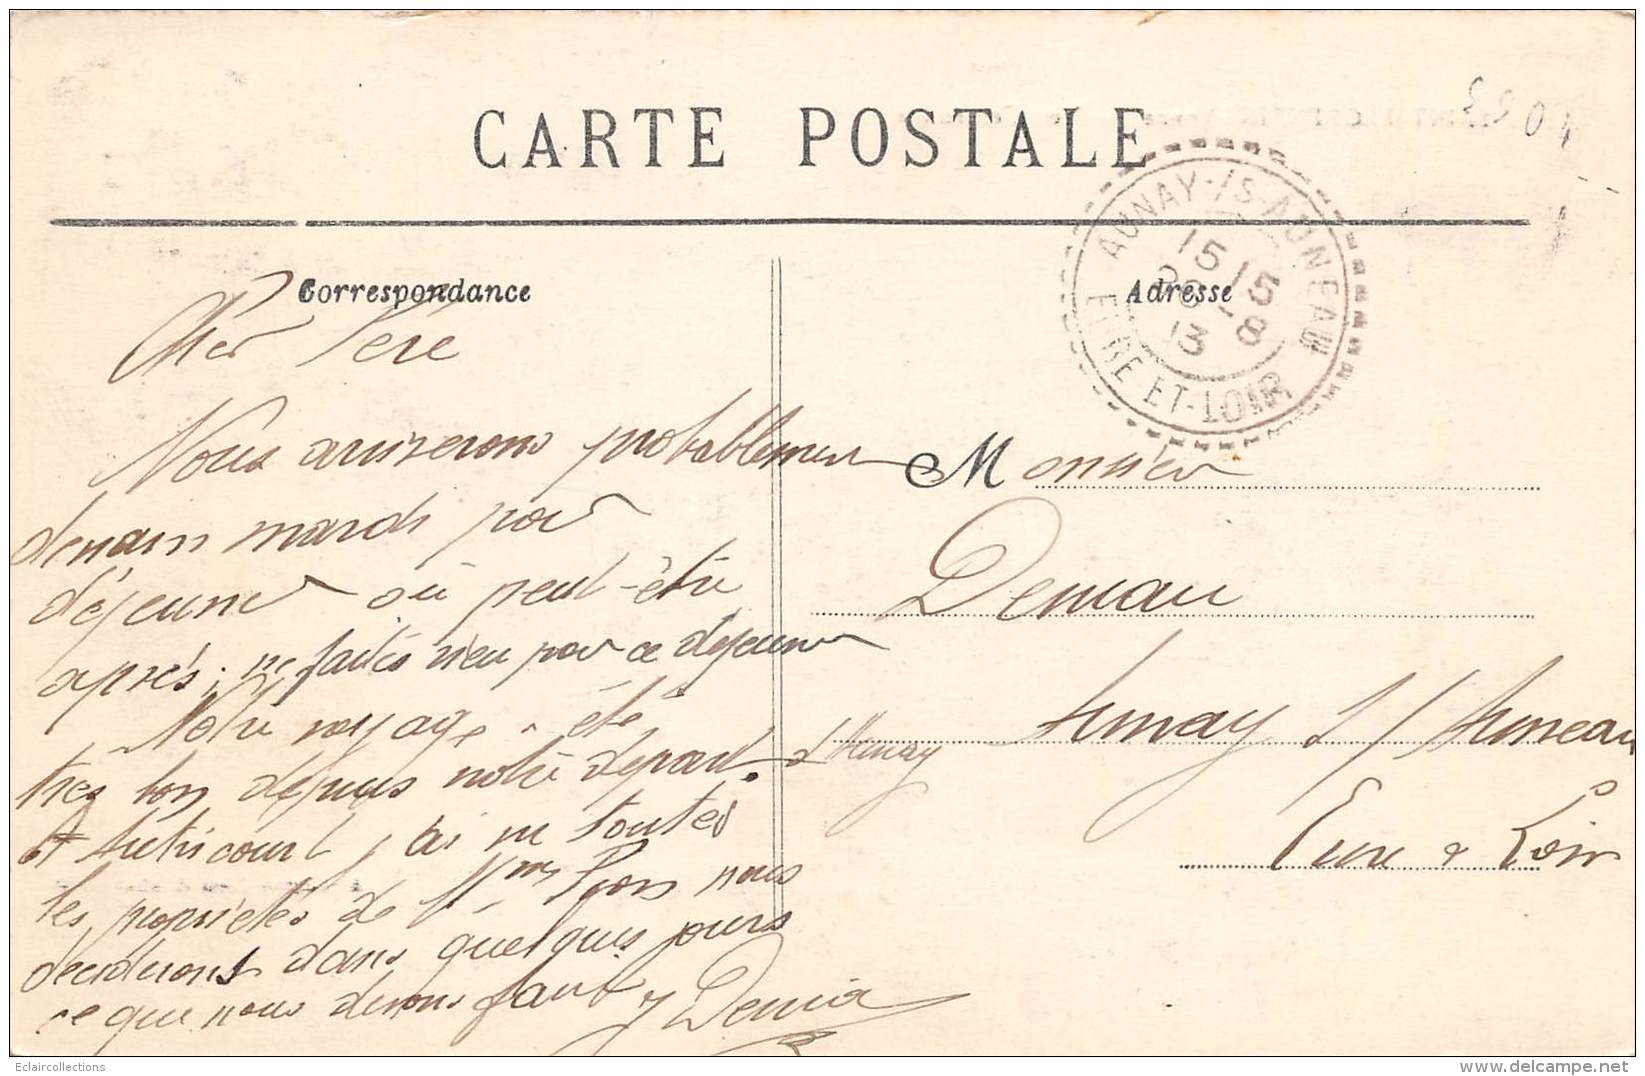 CARTE POSTALE
Correspondance
Cher Père
Nous arriverons probablement
demain mardi pour
déjeuner où peut-être
après; ne faites rien pour ce déjeuner
Notre voyage a été
très bon depuis notre départ d'Aunay
Autricourt j'ai vu toutes
les propriétés de Mme nous
déciderons dans quelques jours
ce que nous devons faire
Adresse
AUNAY-/S-AUNEAU
15 15
13
8
EURE-ET-LOIR
Monsieur
Deniau
Aunay s/ Auneau
Eure & Loir
Eclaircollections
www.delcampe.net